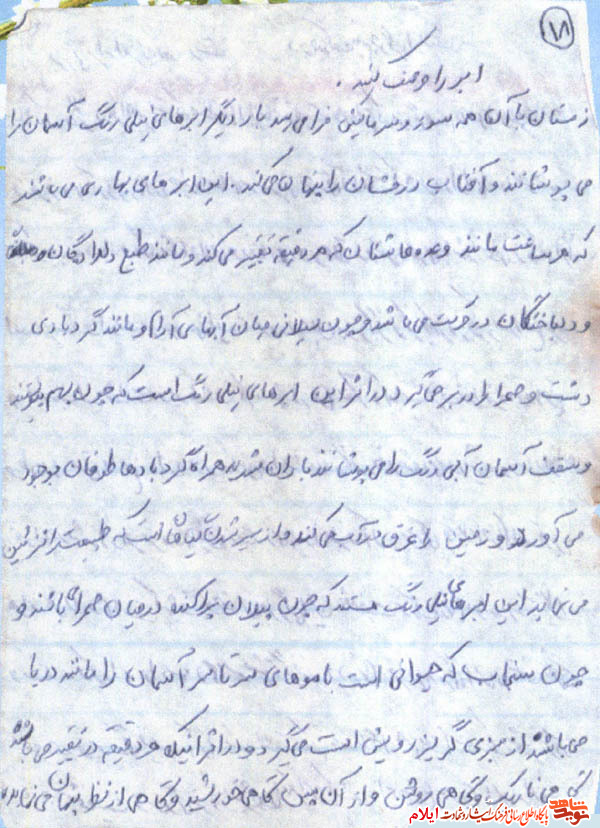 ۱۸
ابر را وصف کنید.
زمستان با آن همه سوز و سرما گیتی فرا می رسد بار دیگر ابرهای نیلی رنگ آسمان را
می پوشانند و آفتاب درخشان را پنهان می کند. این ابرهای بهاری می باشند
که هر ساعت مانند وعده هاشان که هر دقیقه تغییر می کند و مانند طبع دلدادگان
و دلباختگان در حرکت می باشد و چون سیلابی میان آبهای آرام و مانند گردبادی
دشت و صحرا را در بر می گیرد در اثر این ابرهای نیلی رنگ است که چون بهم
و سقف آسمان آبی رنگ را می پوشانند باران شدید همراه گردبادها طوفان بوجود
می آورند و زمین را غرق در آب می کند و از سیر شدن گیاهان است که طبیعت را تزئین
می نماید این ابرهای نیلی رنگ هستند که چون پیلان پراکنده در میان صحرا باشند و
چون سنجاب که حیوانی است با موهای سر آسمان را مانند دریا
می باشد از سبزی گریز رویش است می گیرد و در اثر اینکه هر دقیقه در تغییر می باشد
گاهی تاریک و گاهی روشن و از آن پس گاهی خورشید و گاهی از نظر پنهان می نماید
نوید شاهد
پایگاه اطلاع رسانی فرهنگ ایثار و شهادت ایلام